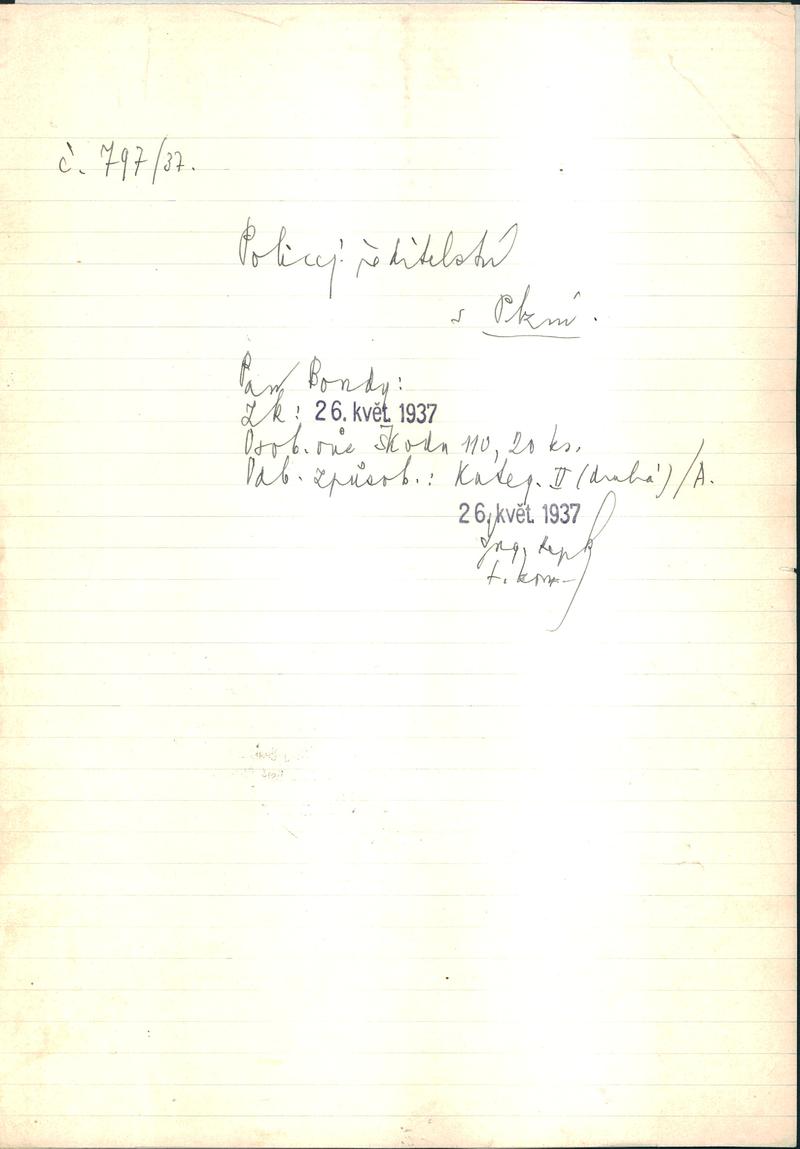 č. 797/37.
Policej. ředitelství
v Plzni.
Pan Bondy:
Zk: 26. květ. 1937
Osob. vůz Škoda 110, 20 ks.
Odb. způsob.: Kateg. II (druhá) /A.
26. květ. 1937
Ing.
t. kom